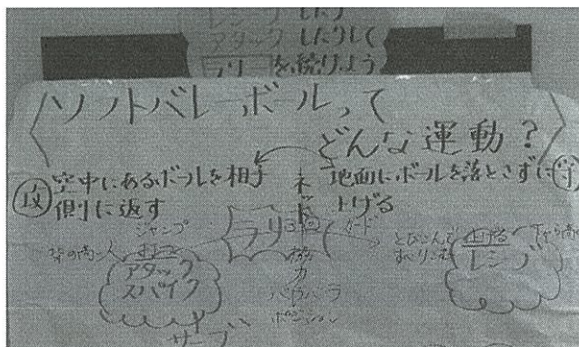 レシーブしたり
アタックしたりして
ラリーを続けよう
〈ソフトバレーボールって
どんな運動？〉
攻 空中にあるボールを相手
側に返す
ネット
地面にボールを落とさずに 守
上げる
ジャンプ
背の高い人 打つ
アタック
スパイク
サーブ
ラリー
3回
協力
バラバラ
ポジション
カード
とびこんで
すべりこむ
上げる
レシーブ